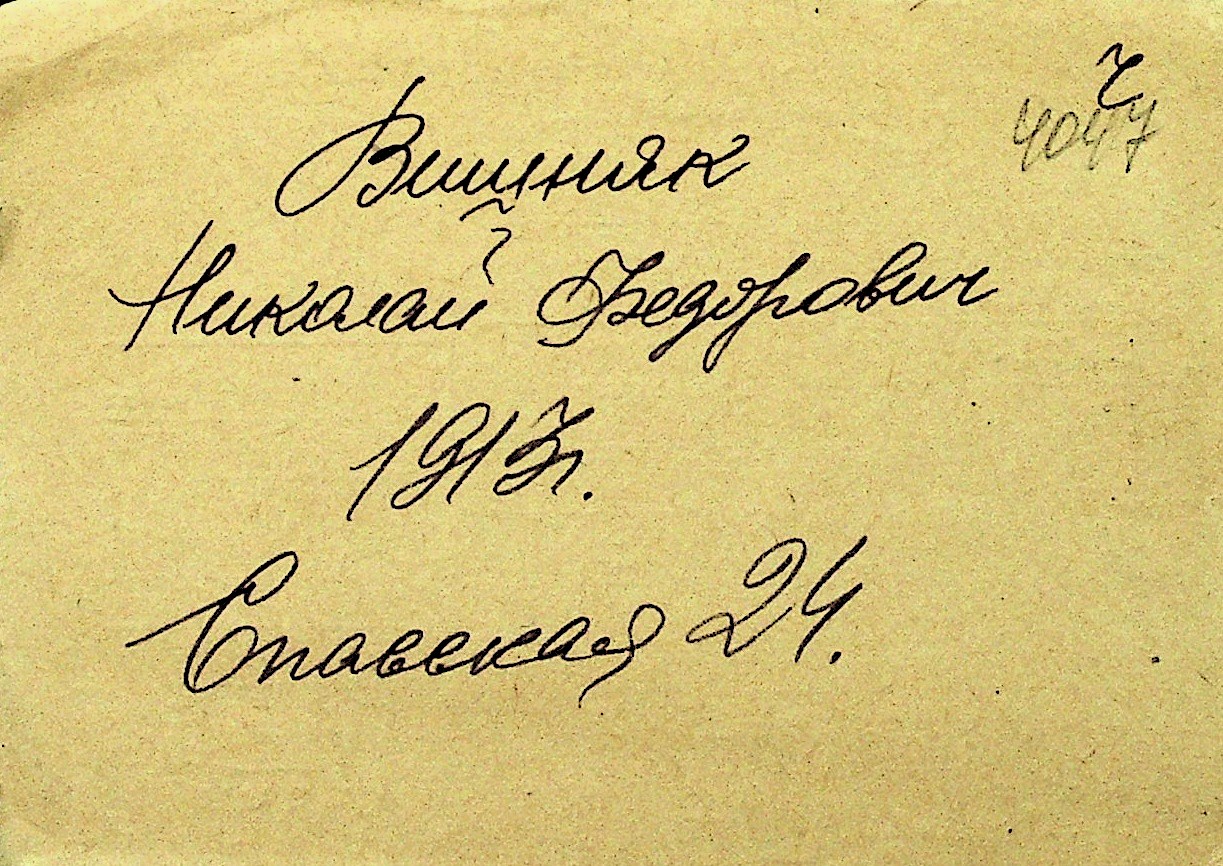 4047
Вишняк
Николай Федорович
1913г.
Спасская 24.